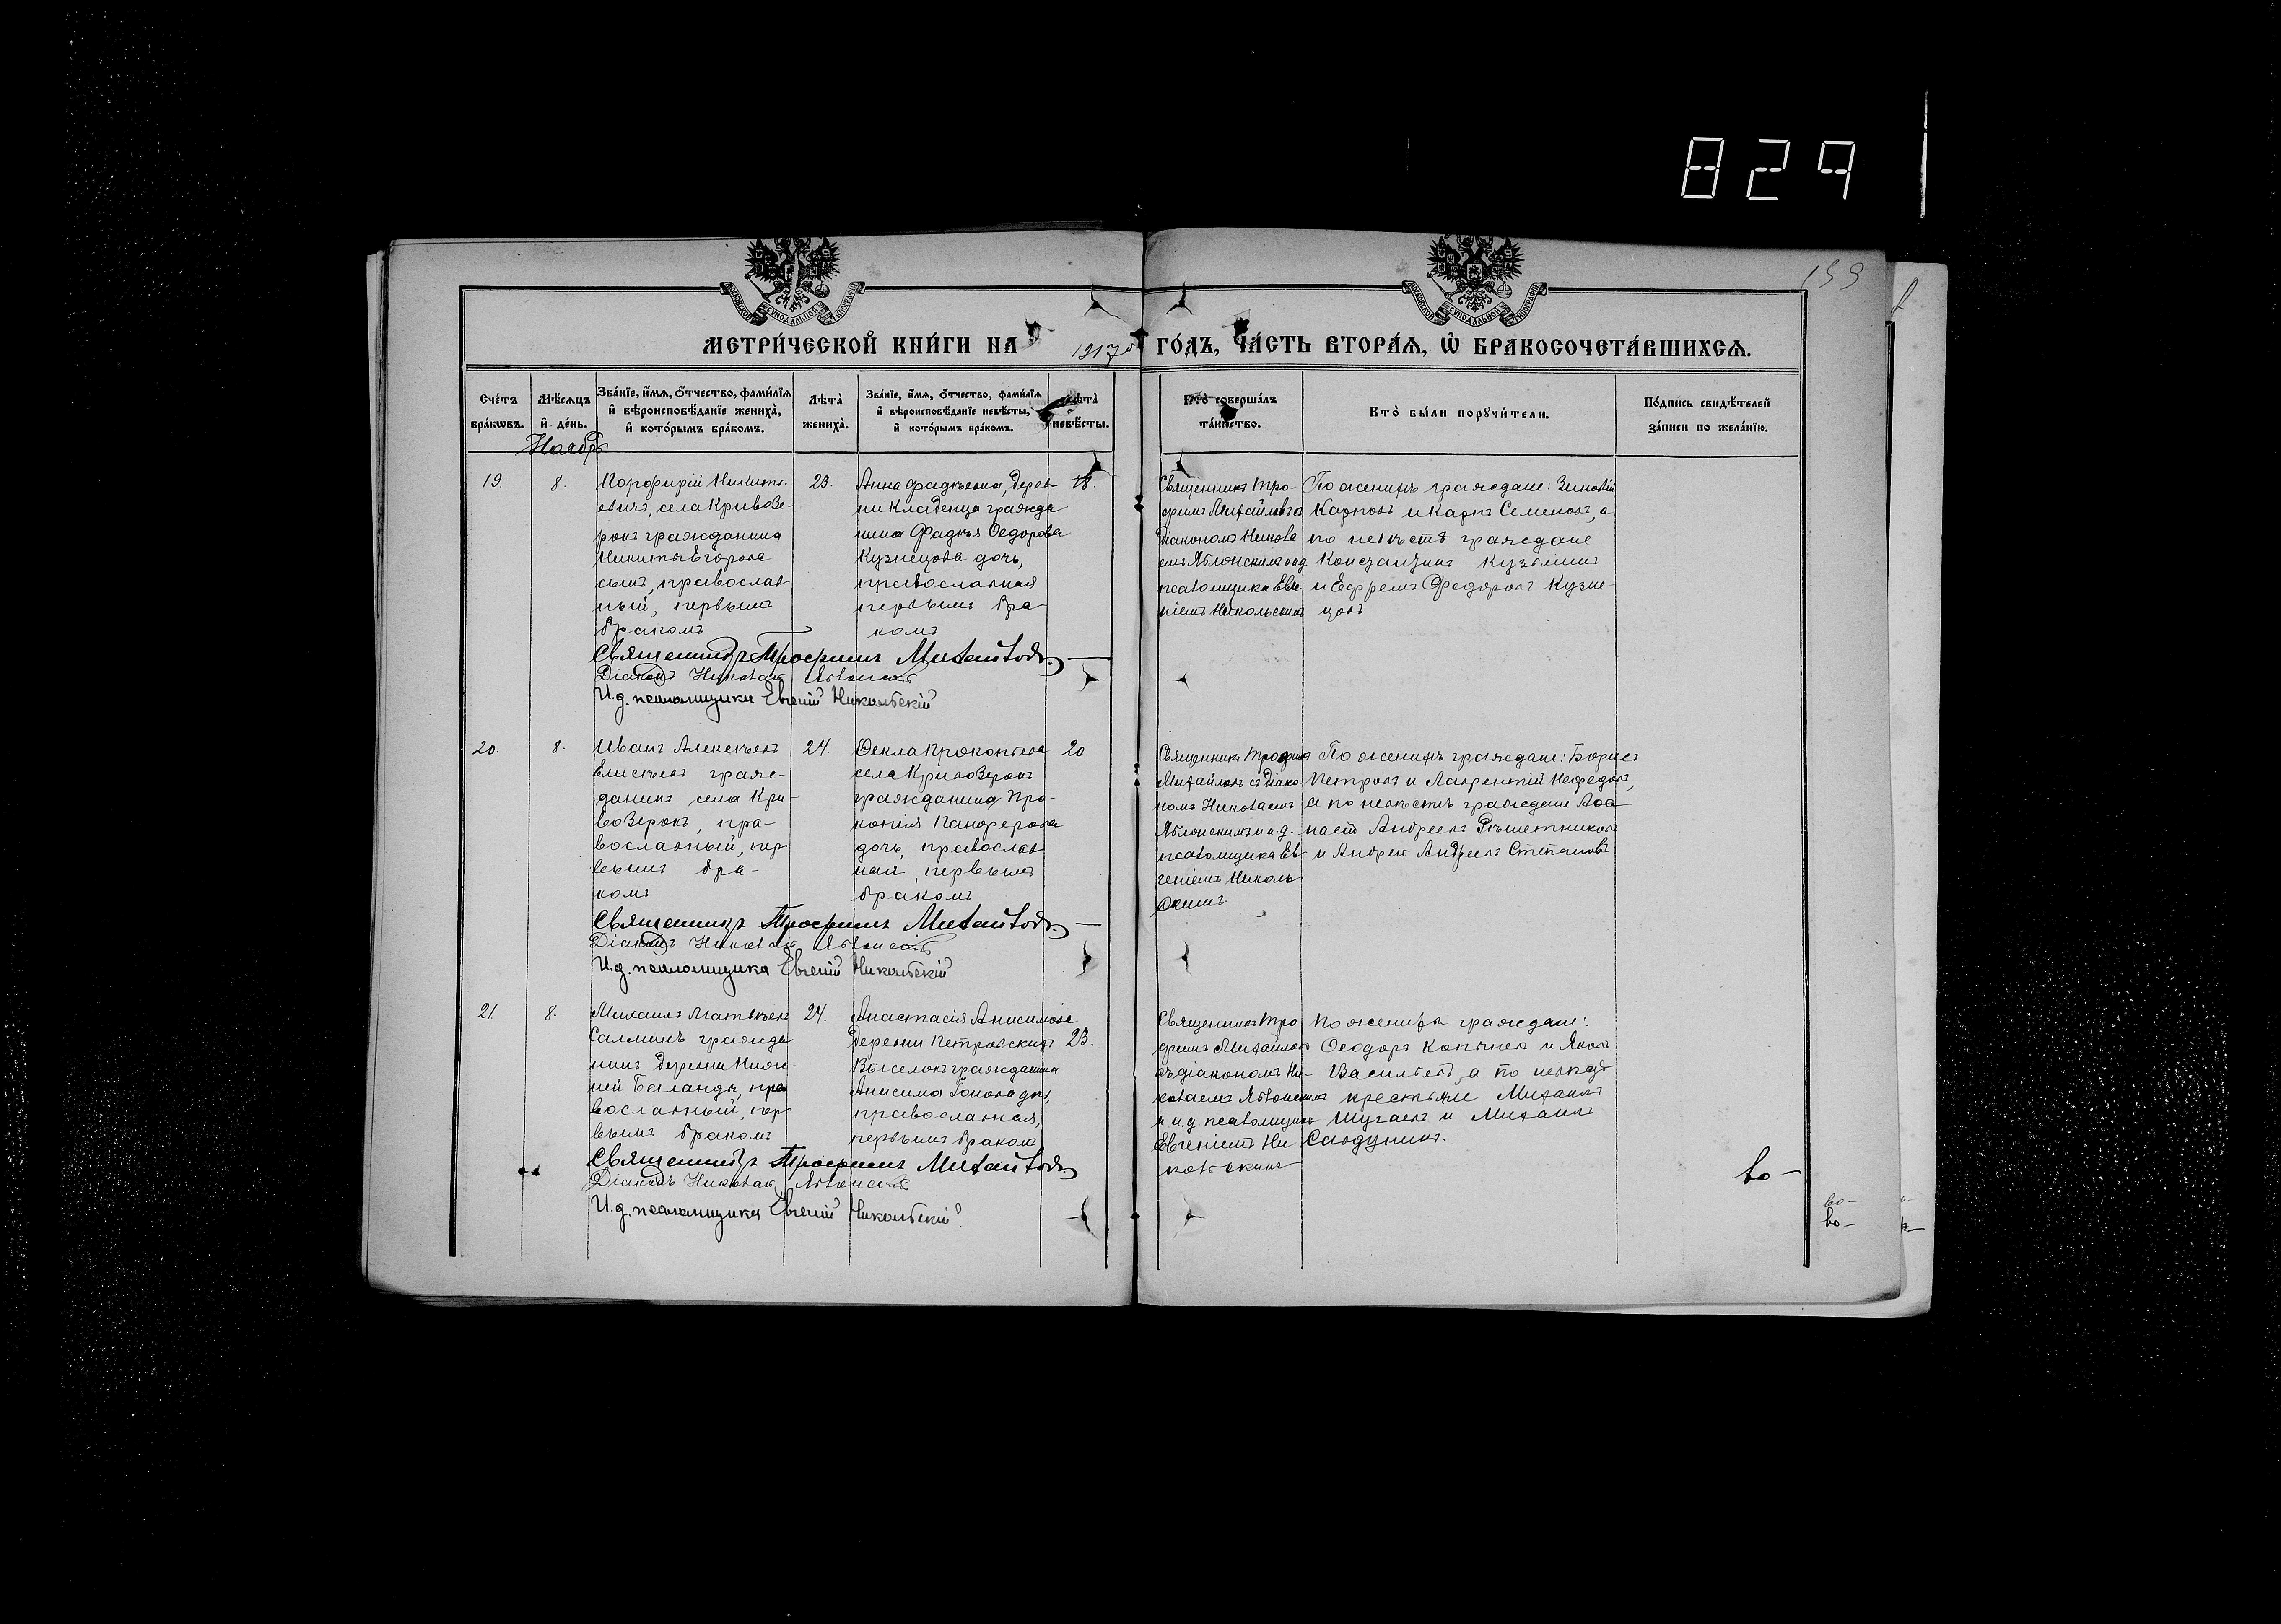 829
159
МЕТРИ́ЧЕСКОЙ КНИ́ГИ НА 1917й ГО́ДЪ, ЧА́СТЬ ВТОРА́Я, Ѡ БРАКОСОЧЕТА́ВШИХСЯ.
Сче́тъ бра́кѡвъ.
Мѣ́сяцъ и де́нь.
Зва́нїе, и́мя, о́тчество, фами́лїя и вѣроисповѣ́данїе жениха̀, и кото́рымъ бра́комъ.
Лѣ́та жениха̀.
Зва́нїе, и́мя, о́тчество, фами́лїя и вѣроисповѣ́данїе невѣ́сты, и кото́рымъ бра́комъ.
Лѣ́та невѣ́сты.
Кто̀ соверша́лъ та́инство.
Кто̀ бы́ли порꙋчи́тели.
По́дпись свидѣ́телей за́писи по жела́нїю.
Ноябрь
19.
8.
Порфирій Никито-
евичъ, села Кривозе-
рокъ гражданина
Никиты Егорова
сынъ, православ-
ный, первымъ
бракомъ
23.
Анна Фадѣевна, дерев
ни Кладенца гражда
нина Фадѣя Ѳедорова
Кузнецова дочь,
православная
первымъ бра-
комъ
18.
Священникъ Тро-
фимъ Михайловъ съ
діакономъ Никола
емъ Яблонскимъ и и д
псаломщика Евге-
ніемъ Никольскимъ
По женихѣ граждане: Зиновій
Карповъ и Карпъ Семеновъ, а
по невѣстѣ граждане
Констанзинъ Кузьминъ
и Ефремъ Федоровъ Кузне-
цовъ
Священникъ Трофимъ Михайловъ
Діаконъ Николай Яблонскій
И.д. псаломщика Евгеній Никольскій
20.
8.
Иванъ Алексѣевъ
Елисѣевъ граж-
данинъ села Кри-
возерокъ, пра-
вославный, пер
вымъ бра-
комъ
24.
Ѳекла Прокопьева
села Кривозерокъ
гражданина Про-
копія Панферова
дочь, православ
ная, первымъ
бракомъ
20
Священникъ Трофимъ
Михайловъ съ діако
номъ Николаемъ
Яблонскимъ и и.д.
псаломщика Ев-
геніемъ Николь
скимъ
По женихѣ граждане: Борисъ
Петровъ и Лаврентій Нефедовъ,
а по невѣстѣ граждане Аѳа
насій Андреевъ Рѣшетниковъ
и Андрей Андреевъ Степановъ
Священникъ Трофимъ Михайловъ
Діаконъ Николай Яблонскій
И.д. псаломщика Евгеній Никольскій
21.
8.
Михаилъ Матвѣевъ
Салминъ гражда
нинъ деревни Ниж-
ней Баланды, пра
вославный, пер
вымъ бракомъ
24.
Анастасія Анисимова
деревни Петровскихъ
Выселокъ гражданина
Анисима дочь,
православная,
первымъ бракомъ
23.
Священникъ Тро
фимъ Михайловъ
съ діакономъ Ни-
колаемъ Яблонскимъ
и и.д. псаломщика
Евгеніемъ Ни
кольскимъ
По женихѣ граждане:
Ѳеодоръ и Яковъ
Васильевъ, а по невѣстѣ
крестьяне Михаилъ
Шугаевъ и Михаилъ
Сандунинъ.
Священникъ Трофимъ Михайловъ
Діаконъ Николай Яблонскій
И.д. псаломщика Евгеній Никольскій
во-
во-
во-